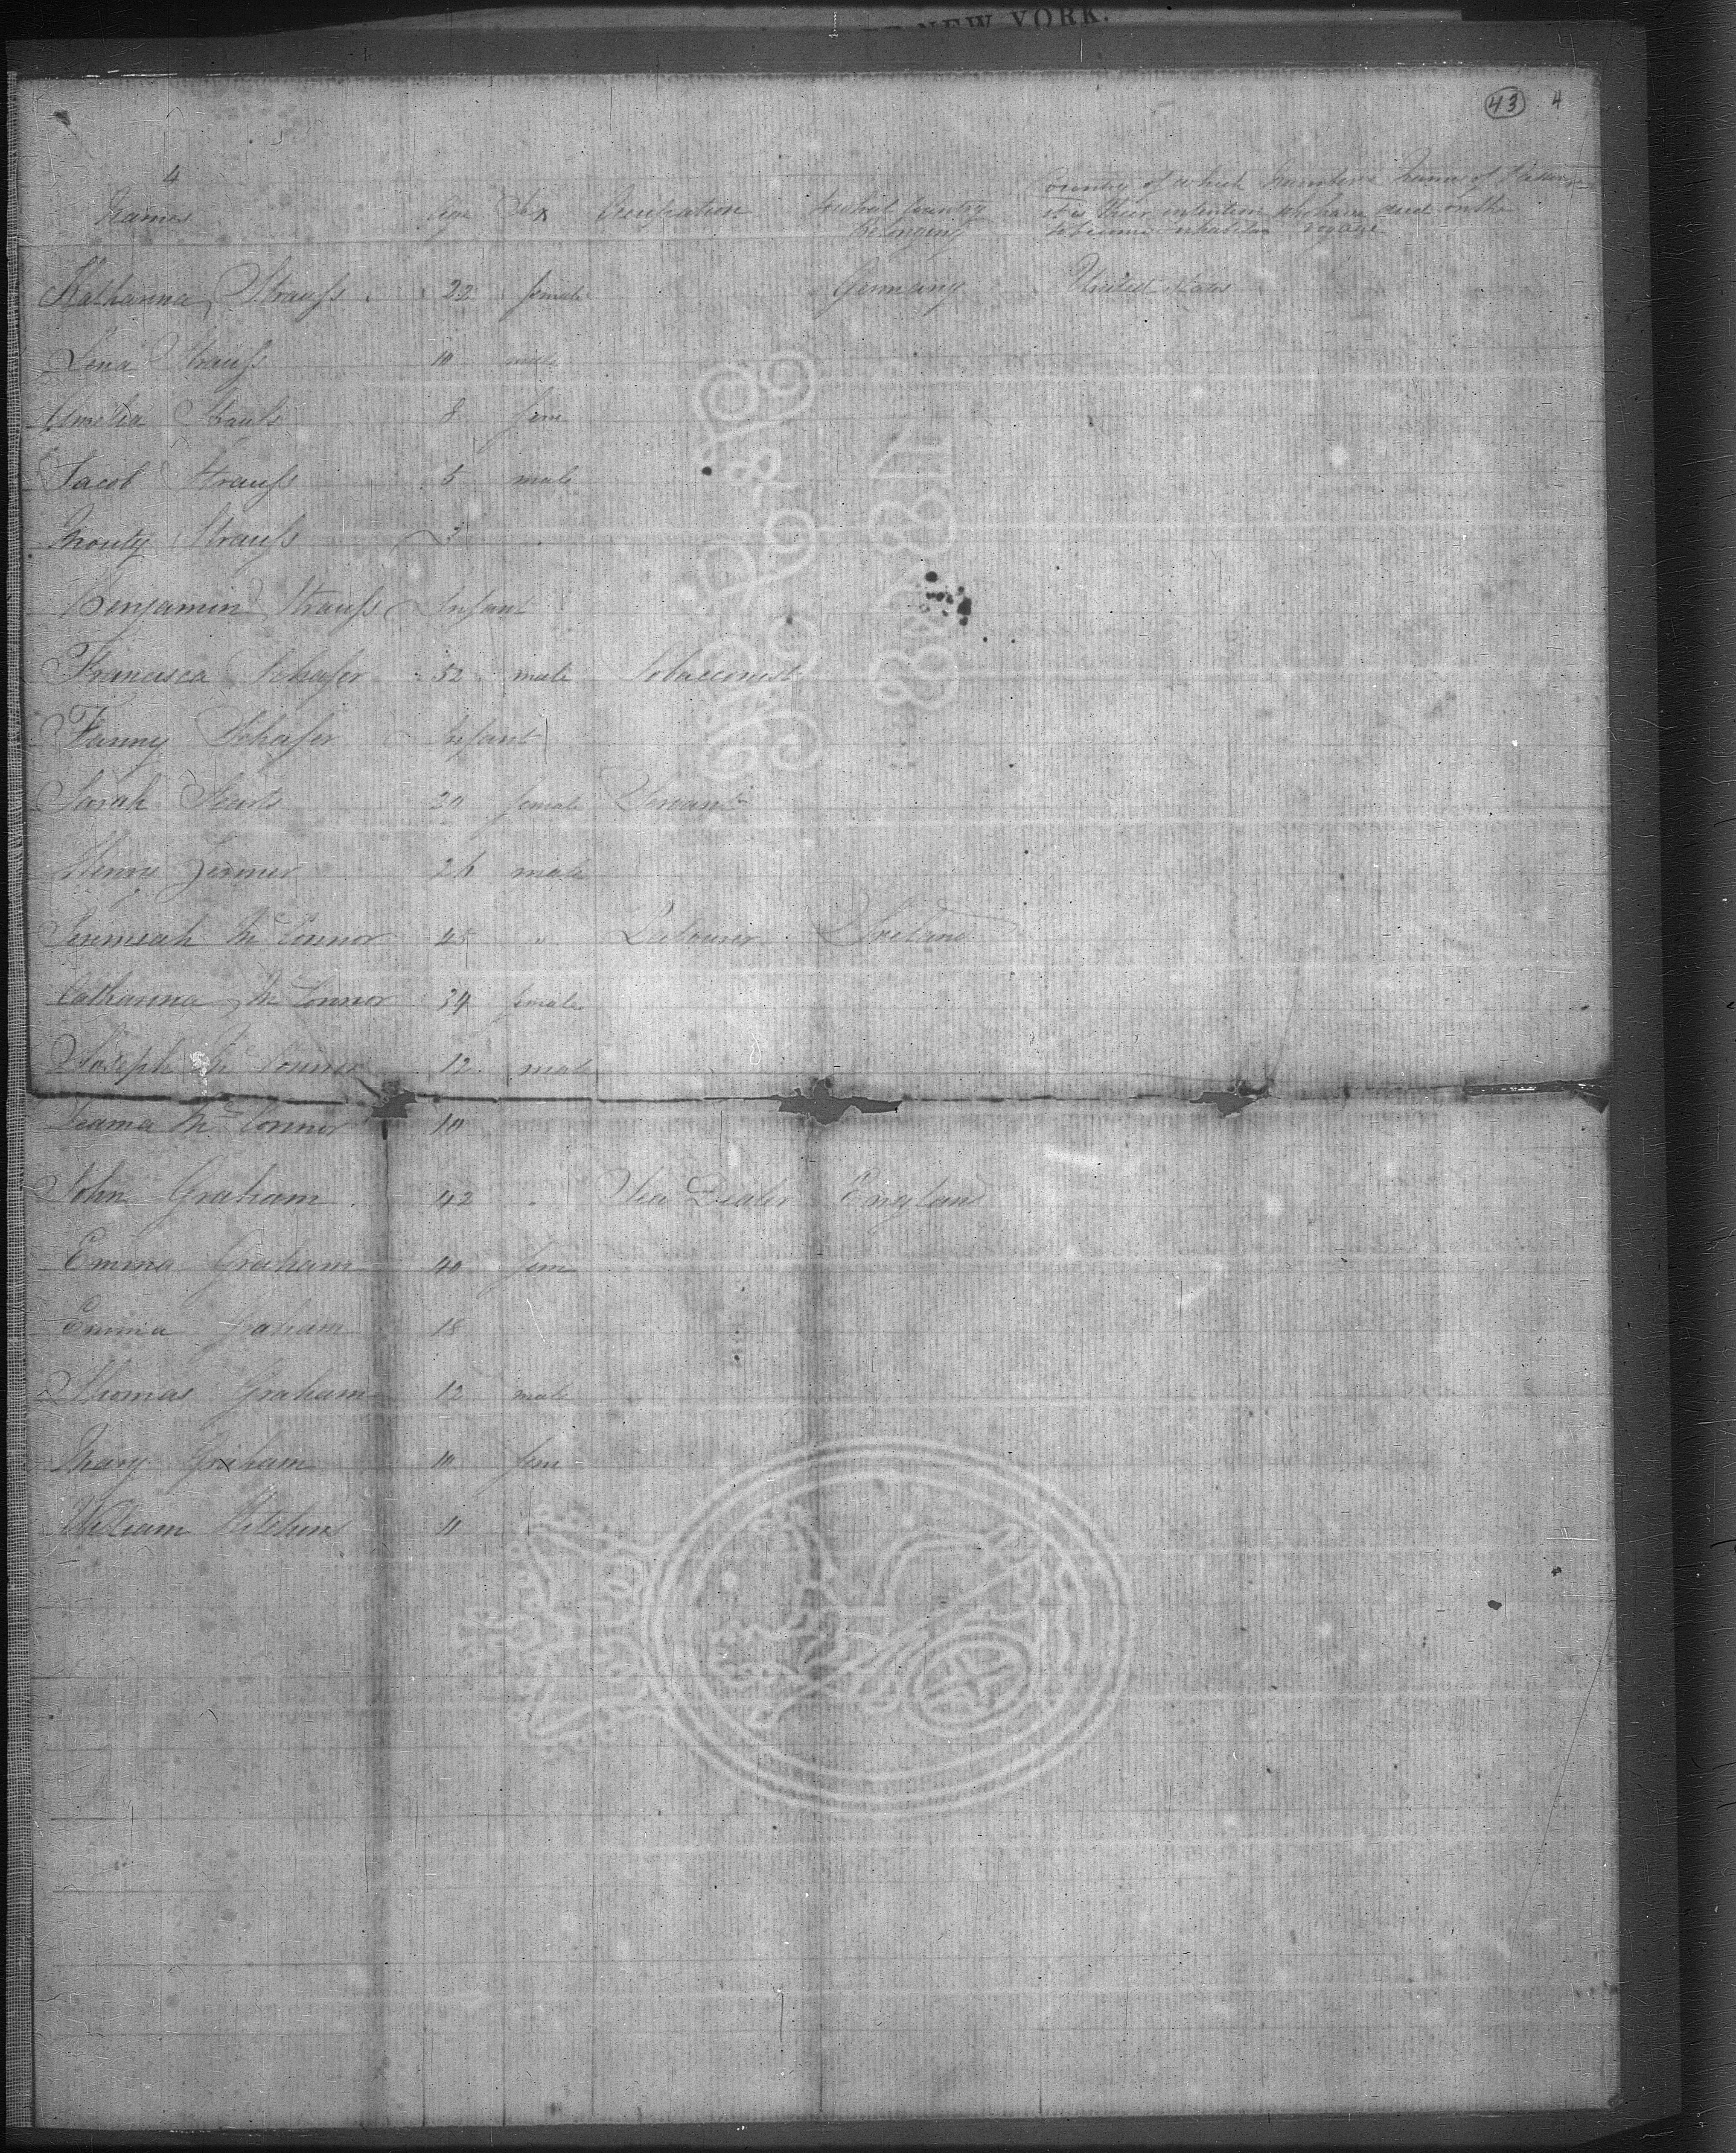 NEW YORK.
43 4
4
Names Age Sex Occupation to what Country Belonging Country of which it is their intention to become inhabitan Number & Names of Passen who have died on the voyage
Katharina Strauss 22 female Germany United States
Lena Strauss 10 male
Amelia Strauss 8 fem
Jacob Strauss 5 male
Strauss 3
Benjamin Strauss Infant
Francisca Schafer 52 male Tobacconist
Fanny Schafer Infant
Sarah 20 female Servant
Henry 26 male
Jeremiah Mc Connor 45 " Labourer Ireland
Catharina Mc Connor 34 female
Joseph Mc Connor 12 male
Mc Connor 10
John Graham 42 " Tea Dealer England
Emma Graham 40 fem
Emma Graham 18
Thomas Graham 12 male
Mary Graham 10 fem
William Hitchens 11